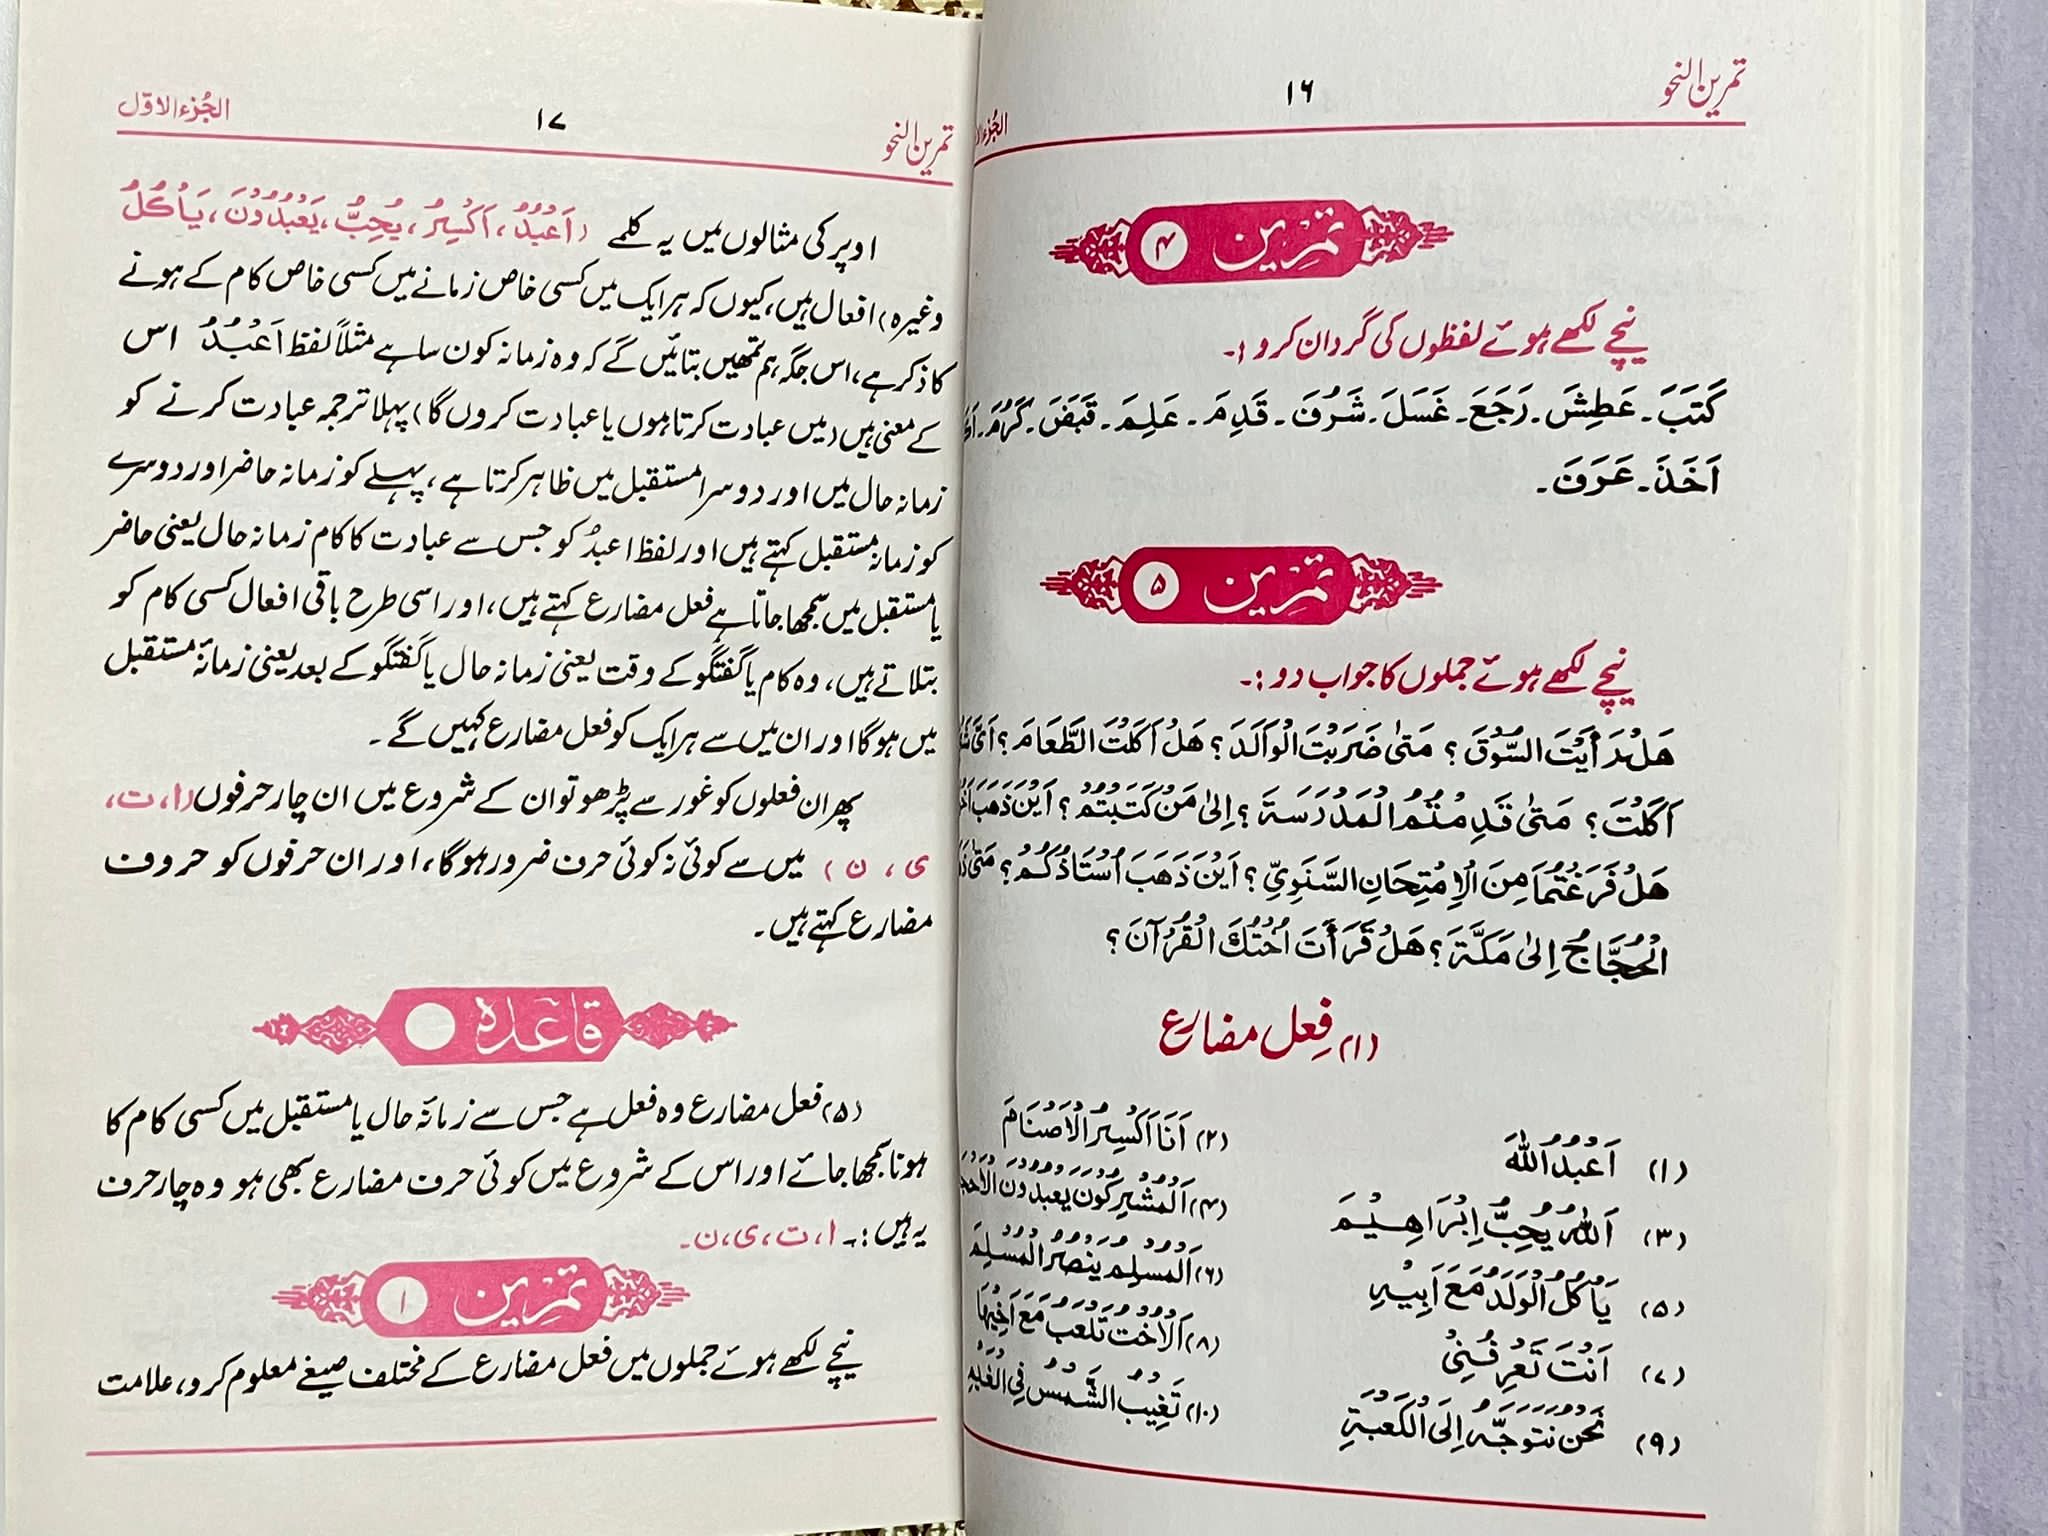 تمرین النحو
۱۶
تمرین ۴
نیچے لکھے ہوئے لفظوں کی گردان کرو :۔
كَتَبَ۔ عَطِشَ۔ رَجَعَ۔ غَسَلَ۔ شَرُفَ۔ قَدِمَ۔ عَلِمَ۔ قَبَضَ۔ كَرُمَ۔
اَخَذَ۔ عَرَفَ۔
تمرین ۵
نیچے لکھے ہوئے جملوں کا جواب دو :۔
هَلْ رَأَيْتَ السُّوْقَ؟ مَتٰى ضَرَبْتَ الْوَلَدَ؟ هَلْ اَكَلْتَ الطَّعَامَ؟
اَكَلْتَ؟ مَتٰى قَدِمْتُمُ الْمَدْرَسَةَ؟ اِلٰى مَنْ كَتَبْتُمْ؟ اَيْنَ ذَهَبَ
هَلْ فَرَغْتُمَا مِنَ الْاِمْتِحَانِ السَّنَوِيِّ؟ اَيْنَ ذَهَبَ اُسْتَاذُكُمْ؟ مَتٰى
الْحُجَّاجُ اِلٰى مَكَّةَ؟ هَلْ قَرَأَتْ اُخْتُكَ الْقُرْآنَ؟
(۱) فِعل مضارع
(۱) اَعْبُدُ اللّٰهَ (۲) اَنَا اَكْسِرُ الْاَصْنَامَ
(۳) اَللّٰهُ يُحِبُّ اِبْرَاهِيْمَ (۴) اَلْمُشْرِكُوْنَ يَعْبُدُوْنَ
(۵) يَأْكُلُ الْوَلَدُ مَعَ اَبِيْهِ (۶) اَلْمُسْلِمُ يَنْصُرُ الْمُسْلِمَ
(۷) اَنْتَ تَعْرِفُنِيْ (۸) اَلْاُخْتُ تَلْعَبُ مَعَ اَخِيْهَا
(۹) نَحْنُ نَتَوَجَّهُ اِلَى الْكَعْبَةِ (۱۰) تَغِيْبُ الشَّمْسُ فِي
تمرین النحو
۱۷
الجُزء الاوّل
اوپر کی مثالوں میں یہ کلمے (اَعْبُدُ، اَكْسِرُ، يُحِبُّ، يَعْبُدُوْنَ، يَأْكُلُ
وغیرہ) افعال ہیں، کیوں کہ ہر ایک میں کسی خاص زمانے میں کسی خاص کام کے ہونے
کا ذکر ہے، اس جگہ ہم تمھیں بتائیں گے کہ وہ زمانہ کون سا ہے مثلاً لفظ اَعْبُدُ اس
کے معنی ہیں (میں عبادت کرتا ہوں یا عبادت کروں گا) پہلا ترجمہ عبادت کرنے کو
زمانہ حال میں اور دوسرا مستقبل میں ظاہر کرتا ہے، پہلے کو زمانہ حاضر اور دوسرے
کو زمانہ مستقبل کہتے ہیں اور لفظ اعبدُ کو جس سے عبادت کا کام زمانہ حال یعنی حاضر
یا مستقبل میں سمجھا جاتا ہے فعل مضارع کہتے ہیں، اور اسی طرح باقی افعال کسی کام کو
بتلاتے ہیں، وہ کام یا گفتگو کے وقت یعنی زمانہ حال یا گفتگو کے بعد یعنی زمانۂ مستقبل
میں ہوگا اور ان میں سے ہر ایک کو فعل مضارع کہیں گے۔
پھر ان فعلوں کو غور سے پڑھو تو ان کے شروع میں ان چار حرفوں (ا، ت،
ی، ن) میں سے کوئی نہ کوئی حرف ضرور ہوگا، اور ان حرفوں کو حروف
مضارع کہتے ہیں۔
قاعدہ
(۵) فعل مضارع وہ فعل ہے جس سے زمانۂ حال یا مستقبل میں کسی کام کا
ہونا سمجھا جائے اور اس کے شروع میں کوئی حرف مضارع بھی ہو وہ چار حرف
یہ ہیں :۔ ا، ت، ی، ن۔
تمرین ۱
نیچے لکھے ہوئے جملوں میں فعل مضارع کے مختلف صیغے معلوم کرو، علامت